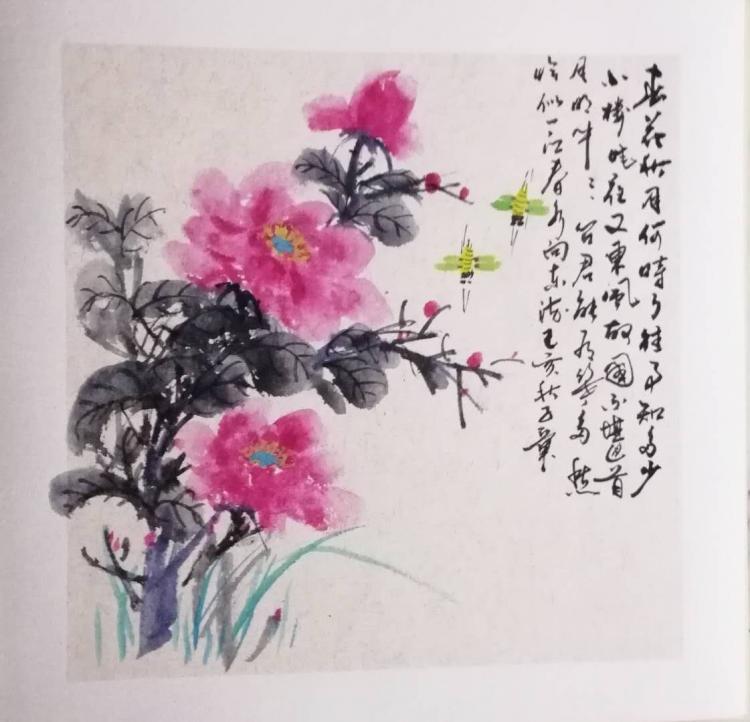 春花秋月何時了往事知多少
小樓昨夜又東風故國不堪迴首
月明中問君能有幾多愁
恰似一江春水向東流亥秋